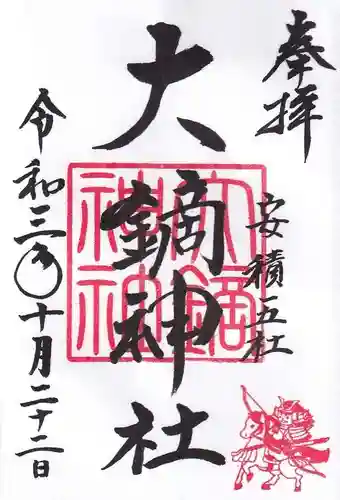 奉拝
安積五社
大鏑神社
大鏑神社
令和三年十月二十二日